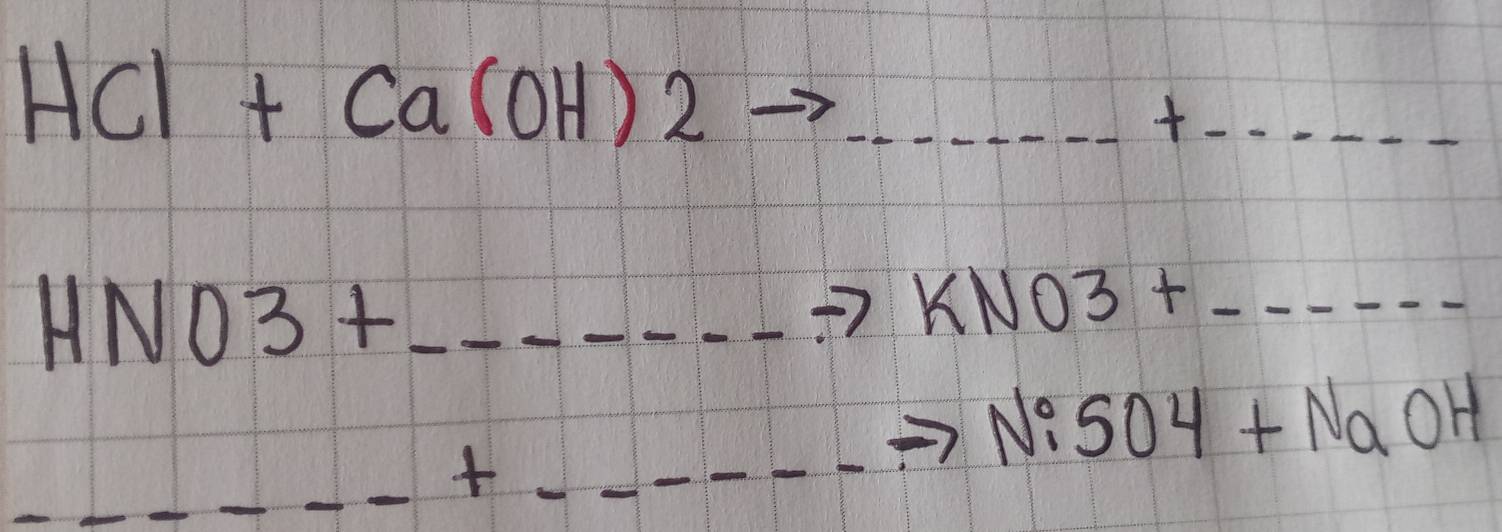 HCl + Ca(OH)2 → -------- + ------
HNO3 + ------- → KNO3 + ------
------ + ------ → NiSO4 + NaOH